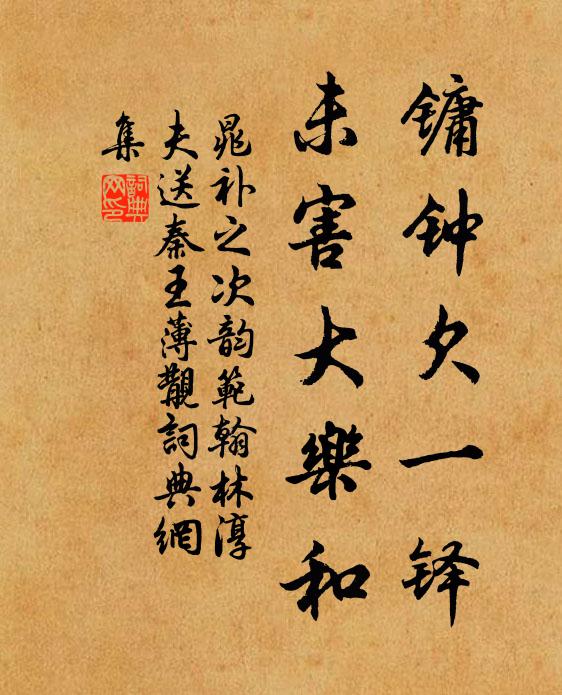 镛钟欠一铎
未害大樂和
晁补之次韵範翰林淳
夫送秦王薄觀詞典網
集
詞典
网印